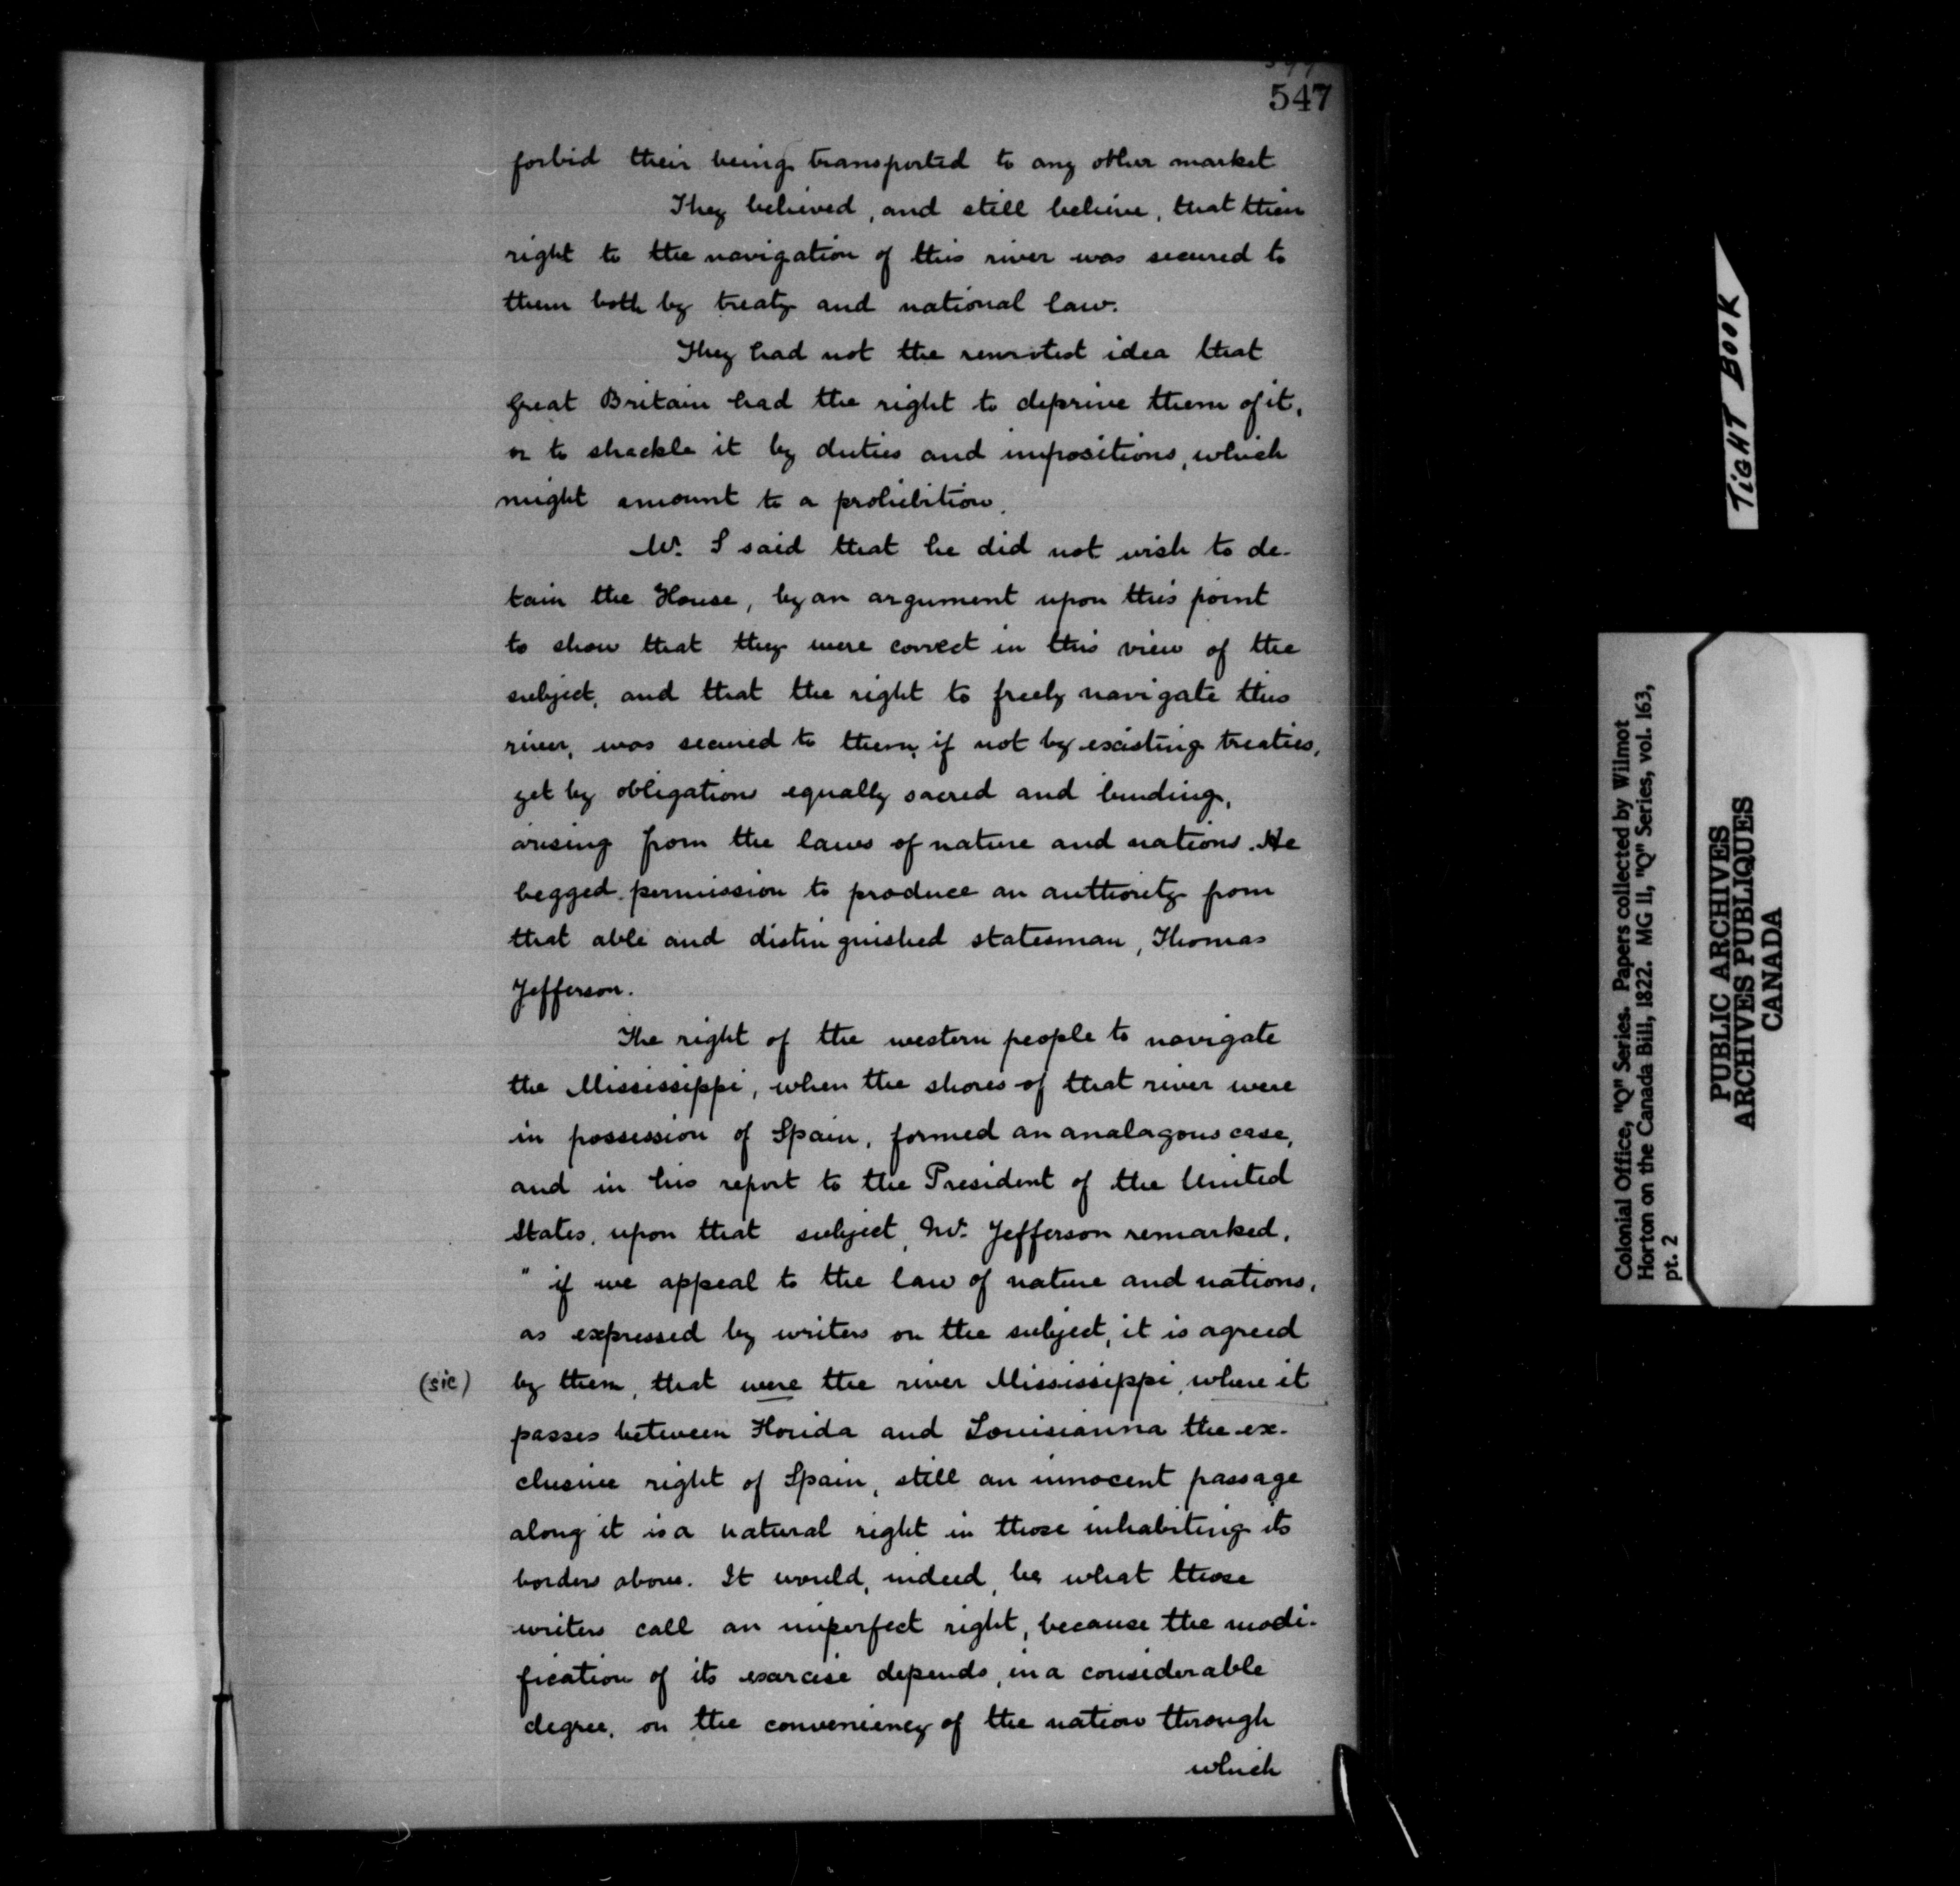 547
forbid their being transported to any other market
They believed, and still believe, that their
right to the navigation of this river was secured to
them both by treaty and national law.
They had not the remotest idea that
Great Britain had the right to deprive them of it,
or to shackle it by duties and impositions, which
might amount to a prohibition.
Mr. S said that he did not wish to de-
tain the House, by an argument upon this point
to show that they were correct in this view of the
subject, and that the right to freely navigate this
river, was secured to them, if not by existing treaties,
yet by obligations equally sacred and binding,
arising from the laws of nature and nations. He
begged permission to produce an authority from
that able and distinguished statesman, Thomas
Jefferson.
The right of the western people to navigate
the Mississippi, when the shores of that river were
in possession of Spain, formed an analagous case,
and in his report to the President of the United
States, upon that subject, Mr. Jefferson remarked,
" if we appeal to the law of nature and nations,
as expressed by writers on the subject, it is agreed
(sic) by them, that were the river Mississippi, where it
passes between Florida and Louisianna the ex-
clusive right of Spain, still an innocent passage
along it is a natural right in those inhabiting its
borders above. It would, indeed, be what those
writers call an imperfect right, because the modi-
fication of its exarcise depends, in a considerable
degree, on the conveniency of the nation through
which
TIGHT BOOK
Colonial Office, "Q" Series. Papers collected by Wilmot
Horton on the Canada Bill, 1822. MG 11, "Q" Series, vol. 163,
pt. 2
PUBLIC ARCHIVES
ARCHIVES PUBLIQUES
CANADA